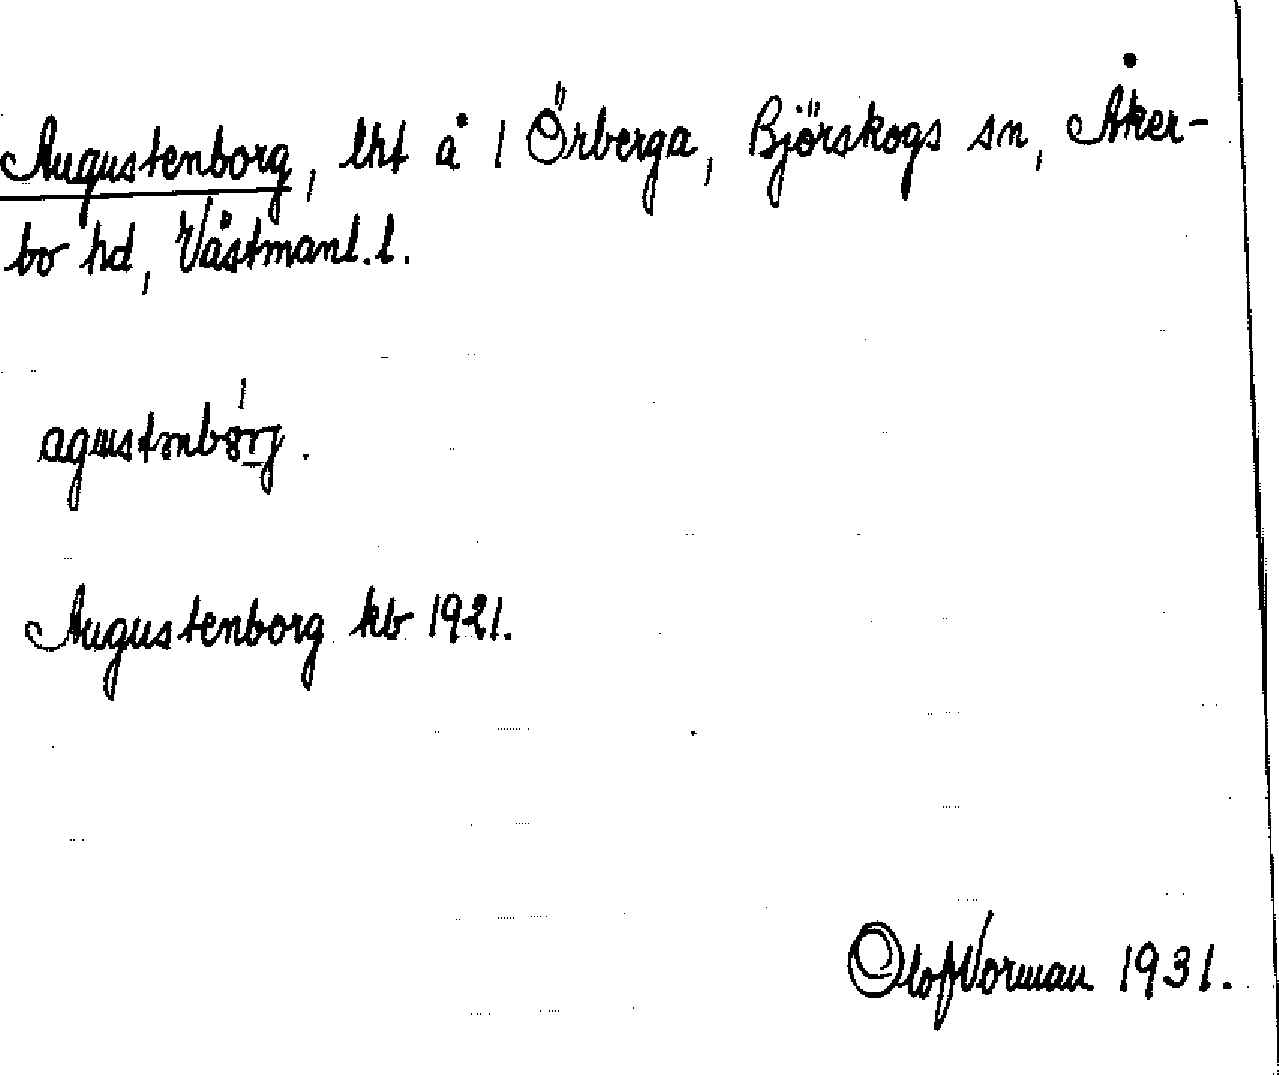 Augustenborg, lht å 1 Örberga, Björskogs sn, Åker-
bo hd, Västmanl. l.
Augustenborg kb 1921.
Olof Vorman 1931.